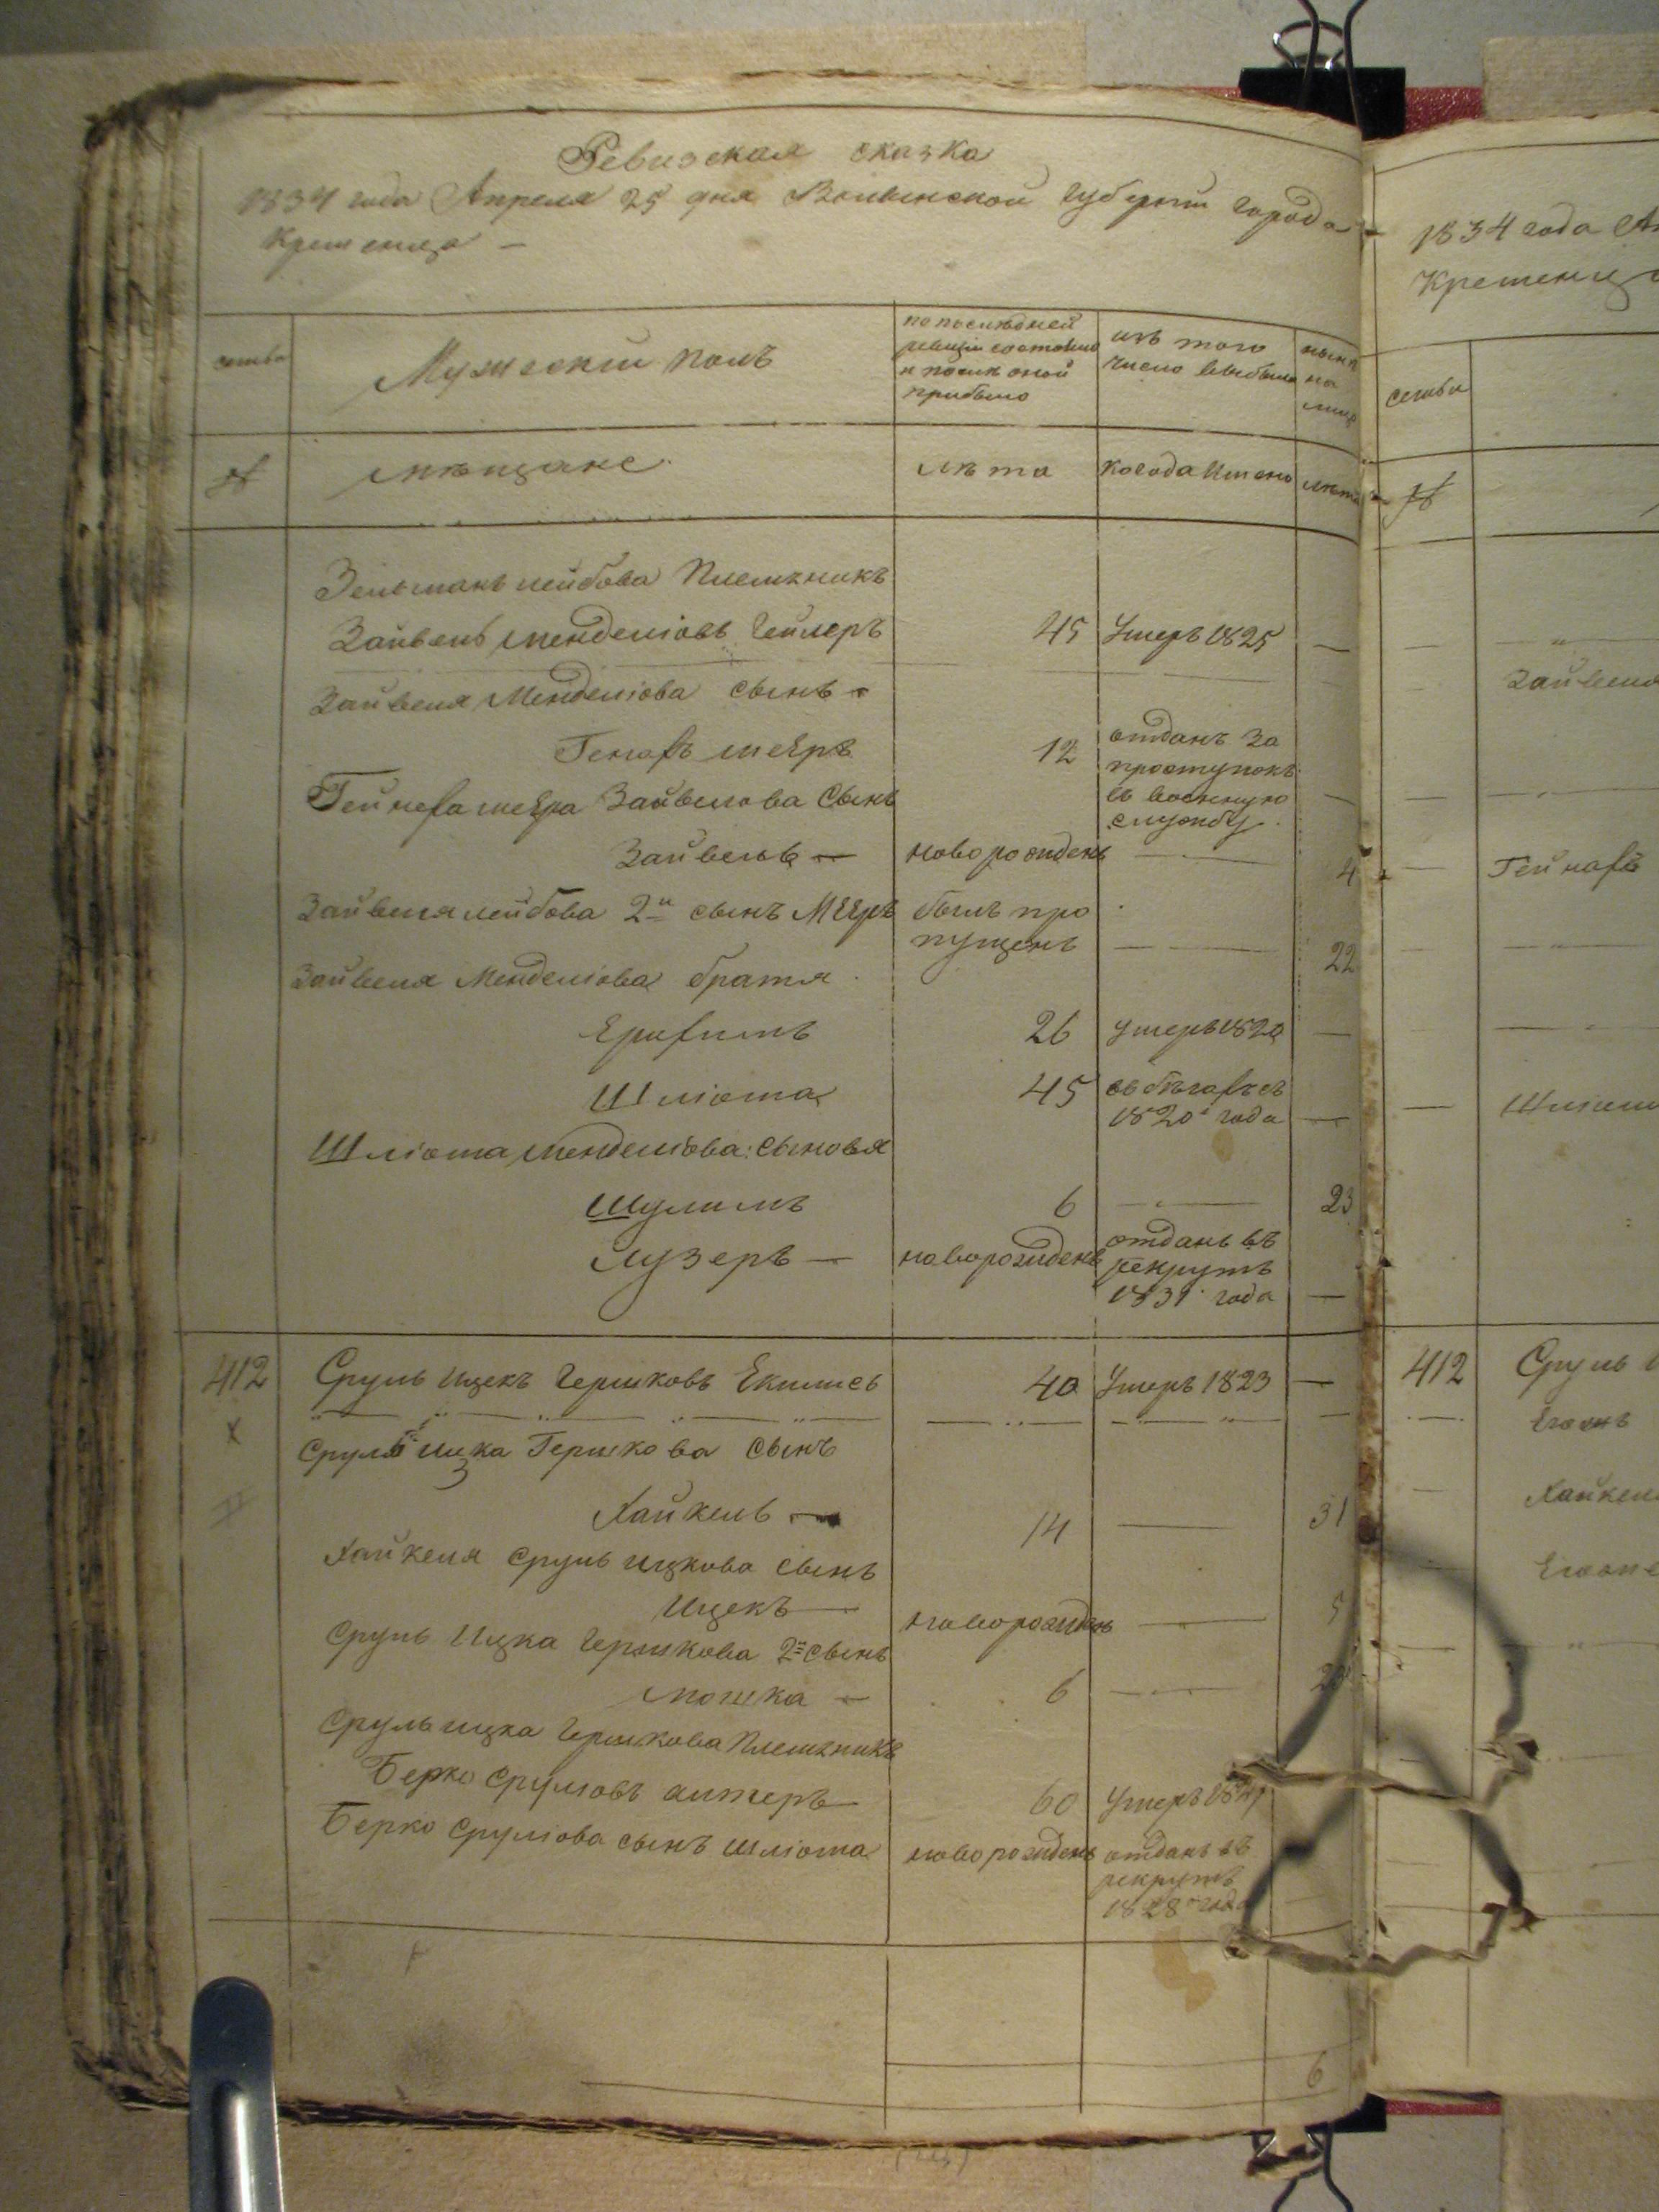 Ревизская сказка
1834 года Апреля 25 дня Волынской губернии города
Кременца —
семьи
Мужеский полъ
по последней
ревизіи состояло
и после оной
прибыло
изъ того
числа выбыло
ныне
на
лицо
№
мещане
лета
когода имено
лета
Зельманъ лейбова Племзникъ
Зайвель Менделіовъ Геллеръ
45
Умеръ 1825
—
Зайвеля Менделіова сынъ
12
отданъ за
проступокъ
въ военную
службу
—
Зайвелова Сынъ
Зайвель —
новорожденъ
—
4
Зайвеля лейбова 2й сынъ Меэръ
былъ про
пущенъ
—
22
Зайвеля Менделіова братя
26
умеръ 1820
—
Шліома
45
въ бегахъ съ
1820 года
—
Шліома Менделіова сыновья
Шулимъ
6
—
23
Лузеръ —
новорожденъ
отданъ въ
рекрутъ
1831 года
—
412
Сруль Ицекъ Гершковъ
40
Умеръ 1823
—
х
Сруль Ицка Гершкова сынъ
Хайкель —
14
—
31
Хайкеля Сруль Ицкова сынъ
Ицекъ —
новорожденъ
—
5
Сруль Ицка Гершкова 2й сынъ
Мошка —
6
—
Сруль Ицка Гершкова Племзникъ
Берко Сруліовъ
60
Умеръ
Берко Сруліова сынъ Шліома
новорожденъ
отданъ въ
рекрутъ
1828 года
6
1834 года
Кременца
семьи
№
Зайвела
Шліома
412
Сруль
Хайкеля